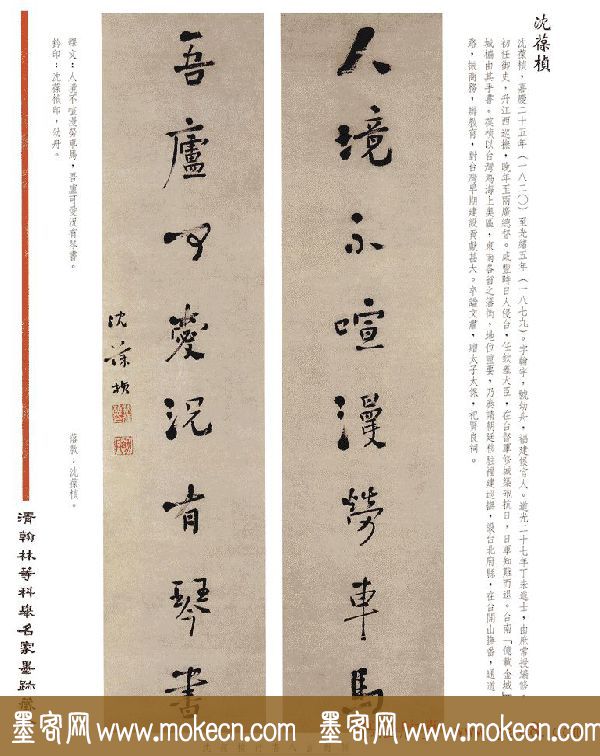 沈葆楨
沈葆楨,嘉慶二十五年(一八二○)至光緒五年(一八七九)。字翰宇,號幼丹,福建侯官人。道光二十七年丁未進士,由庶常授編修。
初任御史,升江西巡撫,晚年至兩廣總督。咸豐時日人侵台,任欽差大臣,在台督軍修城築砲抗日,日軍知難而退。台南「億載金城」
城由其手書。葆楨以台灣為海上奧區,東南各省之藩衛,地位重要,乃奏請朝廷移駐福建巡撫,設台北府縣,在台開山撫番,通道
路,振商務,興教育,對台灣早期建設貢獻甚大。卒謚文肅,贈太子太保,祀賢良祠。
人境不喧漫勞車馬
吾廬可愛況有琴書
沈葆楨
釋文:人境不喧漫勞車馬,吾廬可愛況有琴書。
鈐印:沈葆楨印,幼丹。
落款:沈葆楨。
清翰林等科舉名家墨跡
墨客网 www.mokecn.com 墨客网 www.mokecn.com